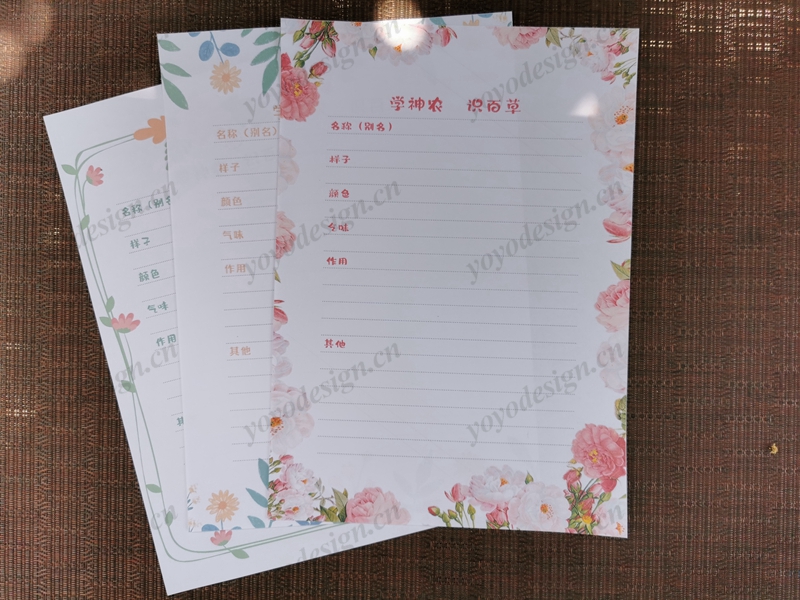 学神农 识百草
名称（别名）
样子
颜色
气味
作用
其他
名称（别名）
样子
颜色
气味
作用
其他
名称（别名
样子
颜色
气味
作用
yoyodesign.cn
yoyodesign.cn
yoyodesign.cn
yoyodesign.cn
yoyodesign.cn
yoyodesign.cn